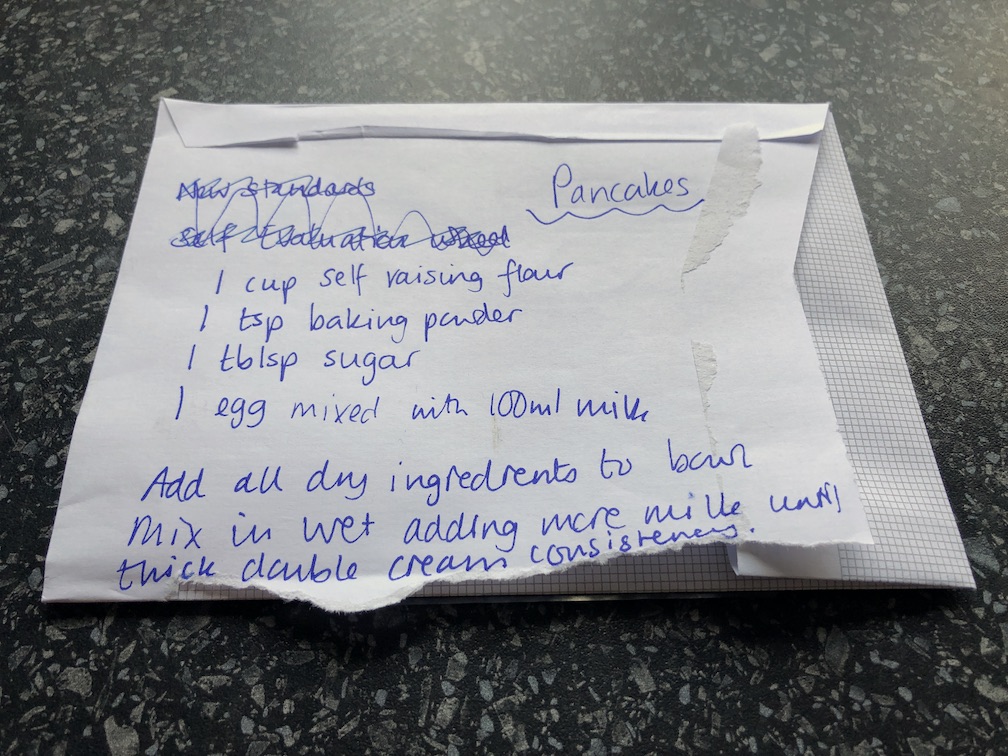 New standards
Pancakes
Self Evaluation
1 cup self raising flour
1 tsp baking powder
1 tblsp sugar
1 egg mixed with 100ml milk
Add all dry ingredients to bowl
Mix in wet adding more milk until
thick double cream consistency.